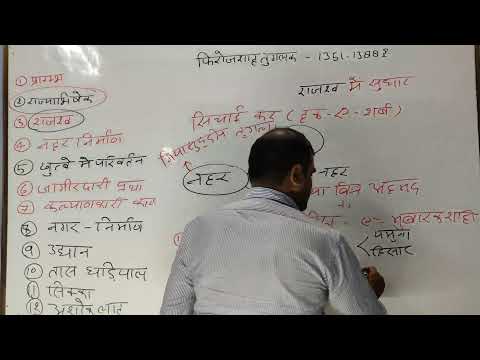 फिरोजशाह तुगलक - 1351-1388ई
राजस्व मे सुधार
① प्रारम्भ
② राज्याभिषेक
③ राजस्व
④ नहर निर्माण
⑤ खुत्बे मे परिवर्तन
⑥ जागीरदारी प्रथा
⑦ कल्याणकारी कार्य
⑧ नगर - निर्माण
⑨ उद्यान
⑩ तास घड़ियाल
⑪ सिक्का
⑫ अशोक लाट
सिचाई कर (हक-ए-शर्ब)
गियासुद्दीन तुगलक
नहर
नहर
बिन अहमद
- ए- मुबारकशाही
यमुना
हिसार